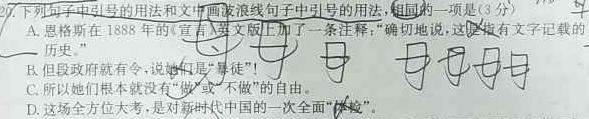 20. 下列句子中引号的用法和文中画波浪线句子中引号的用法,相同的一项是(3分)
A. 恩格斯在1888年的《宣言》英文版上加了一条注释:“确切地说,这是指有文字记载的
历史。”
B. 但段政府就有令,说她们是“暴徒”!
C. 所以她们根本就没有“做”或“不做”的自由。
D. 这场全方位大考,是对新时代中国的一次全面“体检”。